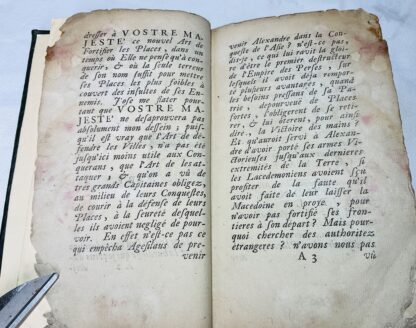 dresser à VOSTRE MA-
JESTE' ce nouvel Art de
Fortifier les Places, dans un
temps où Elle ne pense qu'à con-
querir, & où la seule terreur
de son nom suffit pour mettre
les plus foibles à
couvert des insultes de ses En-
nemis. J'ose me flater pour-
tant que VOSTRE MA-
JESTE' ne desaprouvera pas
absolument mon dessein; puis-
qu'il est vray que l'Art de dé-
fendre les Villes, n'a pas été
jusqu'ici moins utile aux Con-
querans, que l'Art de les at-
taquer, & qu'on a vû de
tres grands Capitaines obligez,
au milieu de leurs Conquestes,
de courir à la défense de leurs
Places, à la seureté desquel-
les ils avoient negligé de pour-
voir. En effet n'est-ce pas ce
qui empêcha Agesilaus de pre-
venir
venir Alexandre dans la Con-
queste de l'Asie? n'est-ce pas,
dis-je, ce qui lui ravit la gloi-
re d'être le premier destructeur
de l'Empire des Perses, sur
lesquels il avoit déja rempor-
té plusieurs avantages, quand
les besoins pressans de sa Pa-
trie, dépourveuë de Places
fortes, l'obligerent de se reti-
rer, & lui ôterent, pour ainsi
dire, la Victoire des mains?
Et qu'auroit servi à Alexan-
dre d'avoir porté ses armes Vi-
ctorieuses jusqu'aux dernieres
extremitez de la Terre, si
les Lacedemoniens avoient sçû
profiter de la faute qu'il
avoit faite de leur laisser la
Macedoine en proye, pour
n'avoir pas fortifié ses fron-
tieres à son départ? Mais pour-
quoi chercher des authoritez
étrangeres? n'avons nous pas
A 3
vû